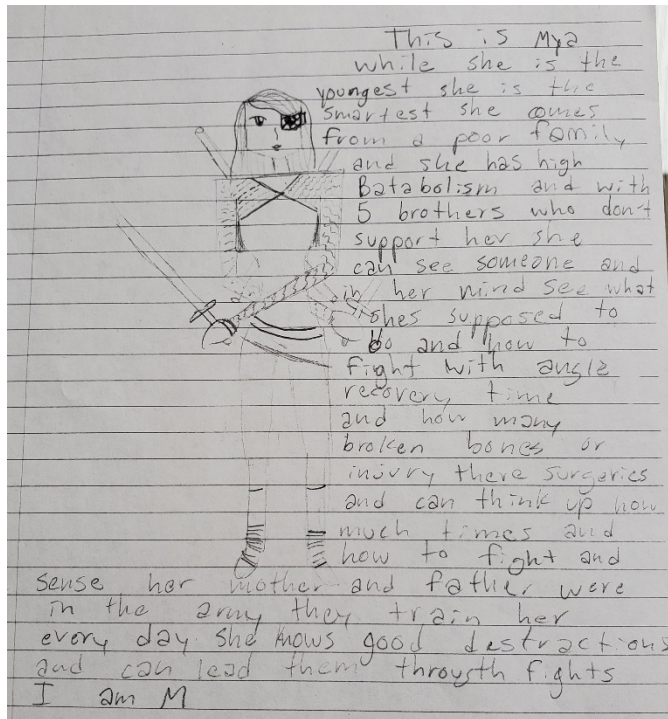 This is Mya
while she is the
youngest she is the
smartest she comes
from a poor family
and she has high
Batabolism and with
5 brothers who don't
support her she
can see someone and
in her mind see what
shes supposed to
do and how to
fight with angle
recovery time
and how many
broken bones or
injury there surgeries
and can think up how
much times and
how to fight and
sense her mother and father were
in the army they train her
every day she knows good destractions
and can lead them througth fights
I am M